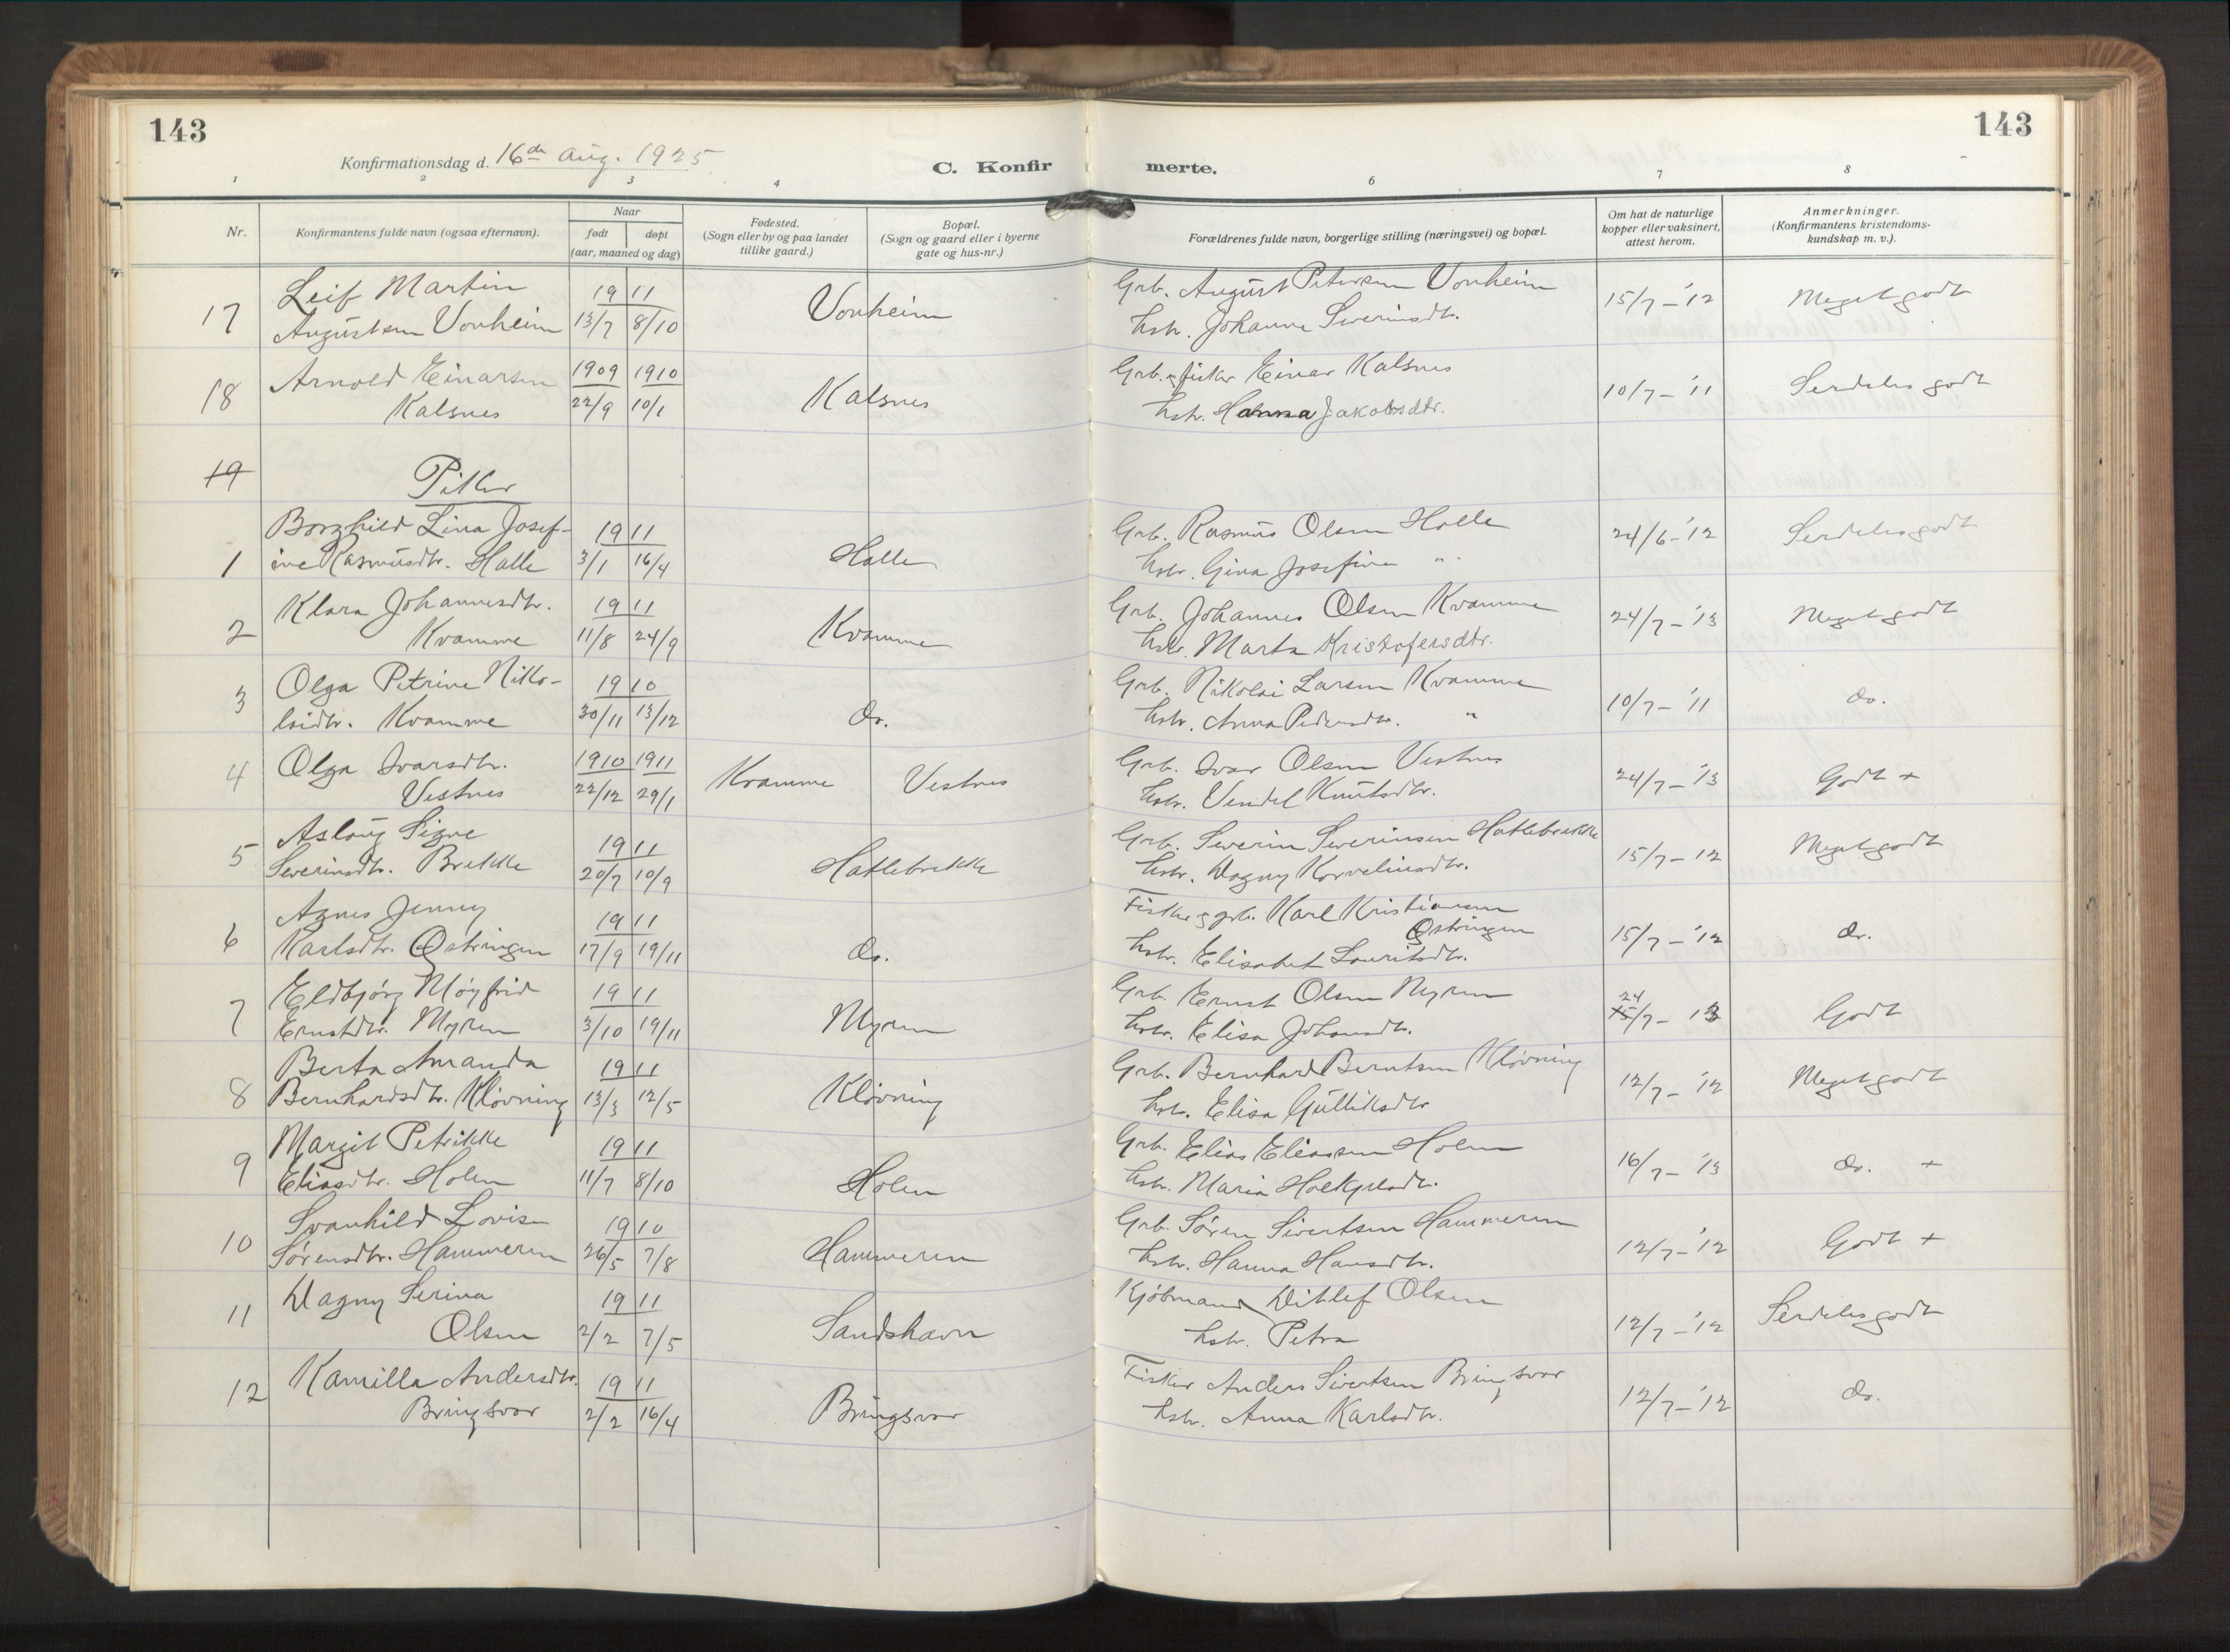 143
143
Konfirmationsdag d. 16de Aug. 1925
C. Konfirmerte.
1 2 3 4 6 7 8
Nr.
Konfirmantens fulde navn (ogsaa efternavn).
Naar
født døpt
(aar, maaned og dag)
Fødested.
(Sogn eller by og paa landet
tillike gaard.)
Bopæl.
(Sogn og gaard eller i byerne
gate og hus-nr.)
Forældrenes fulde navn, borgerlige stilling (næringsvei) og bopæl.
Om hat de naturlige
kopper eller vaksinert,
attest herom.
Anmerkninger.
(Konfirmantens kristendoms-
kundskap m. v.).
17 Leif Martin 19 11 Vonheim Grb. August Petersen Vonheim 15/7 – '12 Meget godt
Augustsen Vonheim 13/7 8/10 hstr. Johanne Severinsdtr.
18 Arnold Einarsen 1909 1910 Kalsnes Grb. og fisker Einar Kalsnes 10/7 – '11 Serdeles godt
Kalsnes 22/9 10/1 hstr. Hanna Jakobsdtr.
19 Piker
Borghild Lina Josef- 19 11 Grb. Rasmus Olsen Halle 24/6 – '12 Serdeles godt
1 ine Rasmusdtr. Halle 3/1 16/4 Halle hstr. Gina Josefine "
Klara Johannesdtr. 19 11 Grb. Johannes Olsen Kvamme 24/7 – '13 Meget godt
2 Kvamme 11/8 24/9 Kvamme hstr. Marta Kristofersdtr.
3 Olga Petrine Niko- 19 10 Grb. Nikolai Larsen Kvamme 10/7 – '11 do.
laidtr. Kvamme 30/11 13/12 do. hstr. Anna Pedersdtr. "
4 Olga Ivarsdtr. 1910 1911 Kvamme Vestnes Grb. Ivar Olsen Vestnes 24/7 – '13 Godt +
Vestnes 22/12 29/1 hstr. Vendel Knutsdtr.
5 Aslaug Signe 19 11 Grb. Severin Severinsen Hatlebrekke 15/7 – 12 Meget godt
Severinsdtr. Brekke 20/7 10/9 Hatlebrekke hstr. Dagny Kornelinsdtr.
Agnes Jenny 19 11 Fisker og grb. Karl Kristiansen
6 Karlsdtr. Østringen 17/9 19/11 do. Østringen 15/7 – '12 do.
hstr. Elisabet Lauritsdtr.
Eldbjørg Møyfrid 19 11 Grb. Ernst Olsen Myren 24 Godt
7 Ernstdtr. Myren 3/10 19/11 Myren hstr. Elisa Johansdtr. 15/7 – 13
Berta Amanda 19 11 Grb. Bernhard Berntsen Kløvning 12/7 – '12 Meget godt
8 Bernhardsdtr. Kløvning 13/3 12/5 Kløvning hstr. Elisa Gulliksdtr
Margit Petrikke 19 11 Grb. Elias Eliassen Holen 16/7 – '13 do. +
9 Eliasdtr. Holen 11/7 8/10 Holen hstr. Maria
Svanhild Lovise 19 10 Grb. Søren Sivertsen Hammeren 12/7 – '12 Godt +
10 Sørensdtr. Hammeren 26/5 7/8 Hammeren hstr. Hanna Hansdtr.
11 Dagny Serina 19 11 Kjøbmand Ditlef Olsen 12/7 – '12 Serdeles godt
Olsen 2/2 7/5 Sandshavn hstr. Petra
12 Kamilla Andersdtr. 19 11 Fisker Anders Sivertsen Bringsvor 12/7 – '12 do.
Bringsvor 2/2 16/4 Bringsvor hstr. Anna Karlsdtr.